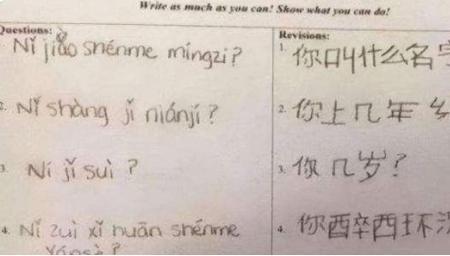 Write as much as you can! Show what you can do!
Questions: Revisions:
Nǐ jiào shénme míngzi? 1. 你叫什么名字
2. Nǐ shàng jǐ niánjí? 2. 你上几年
3. Ní jǐ suì ? 3. 你几岁?
4. Nǐ zuì xǐ huān shénme 4. 你酉卒西环